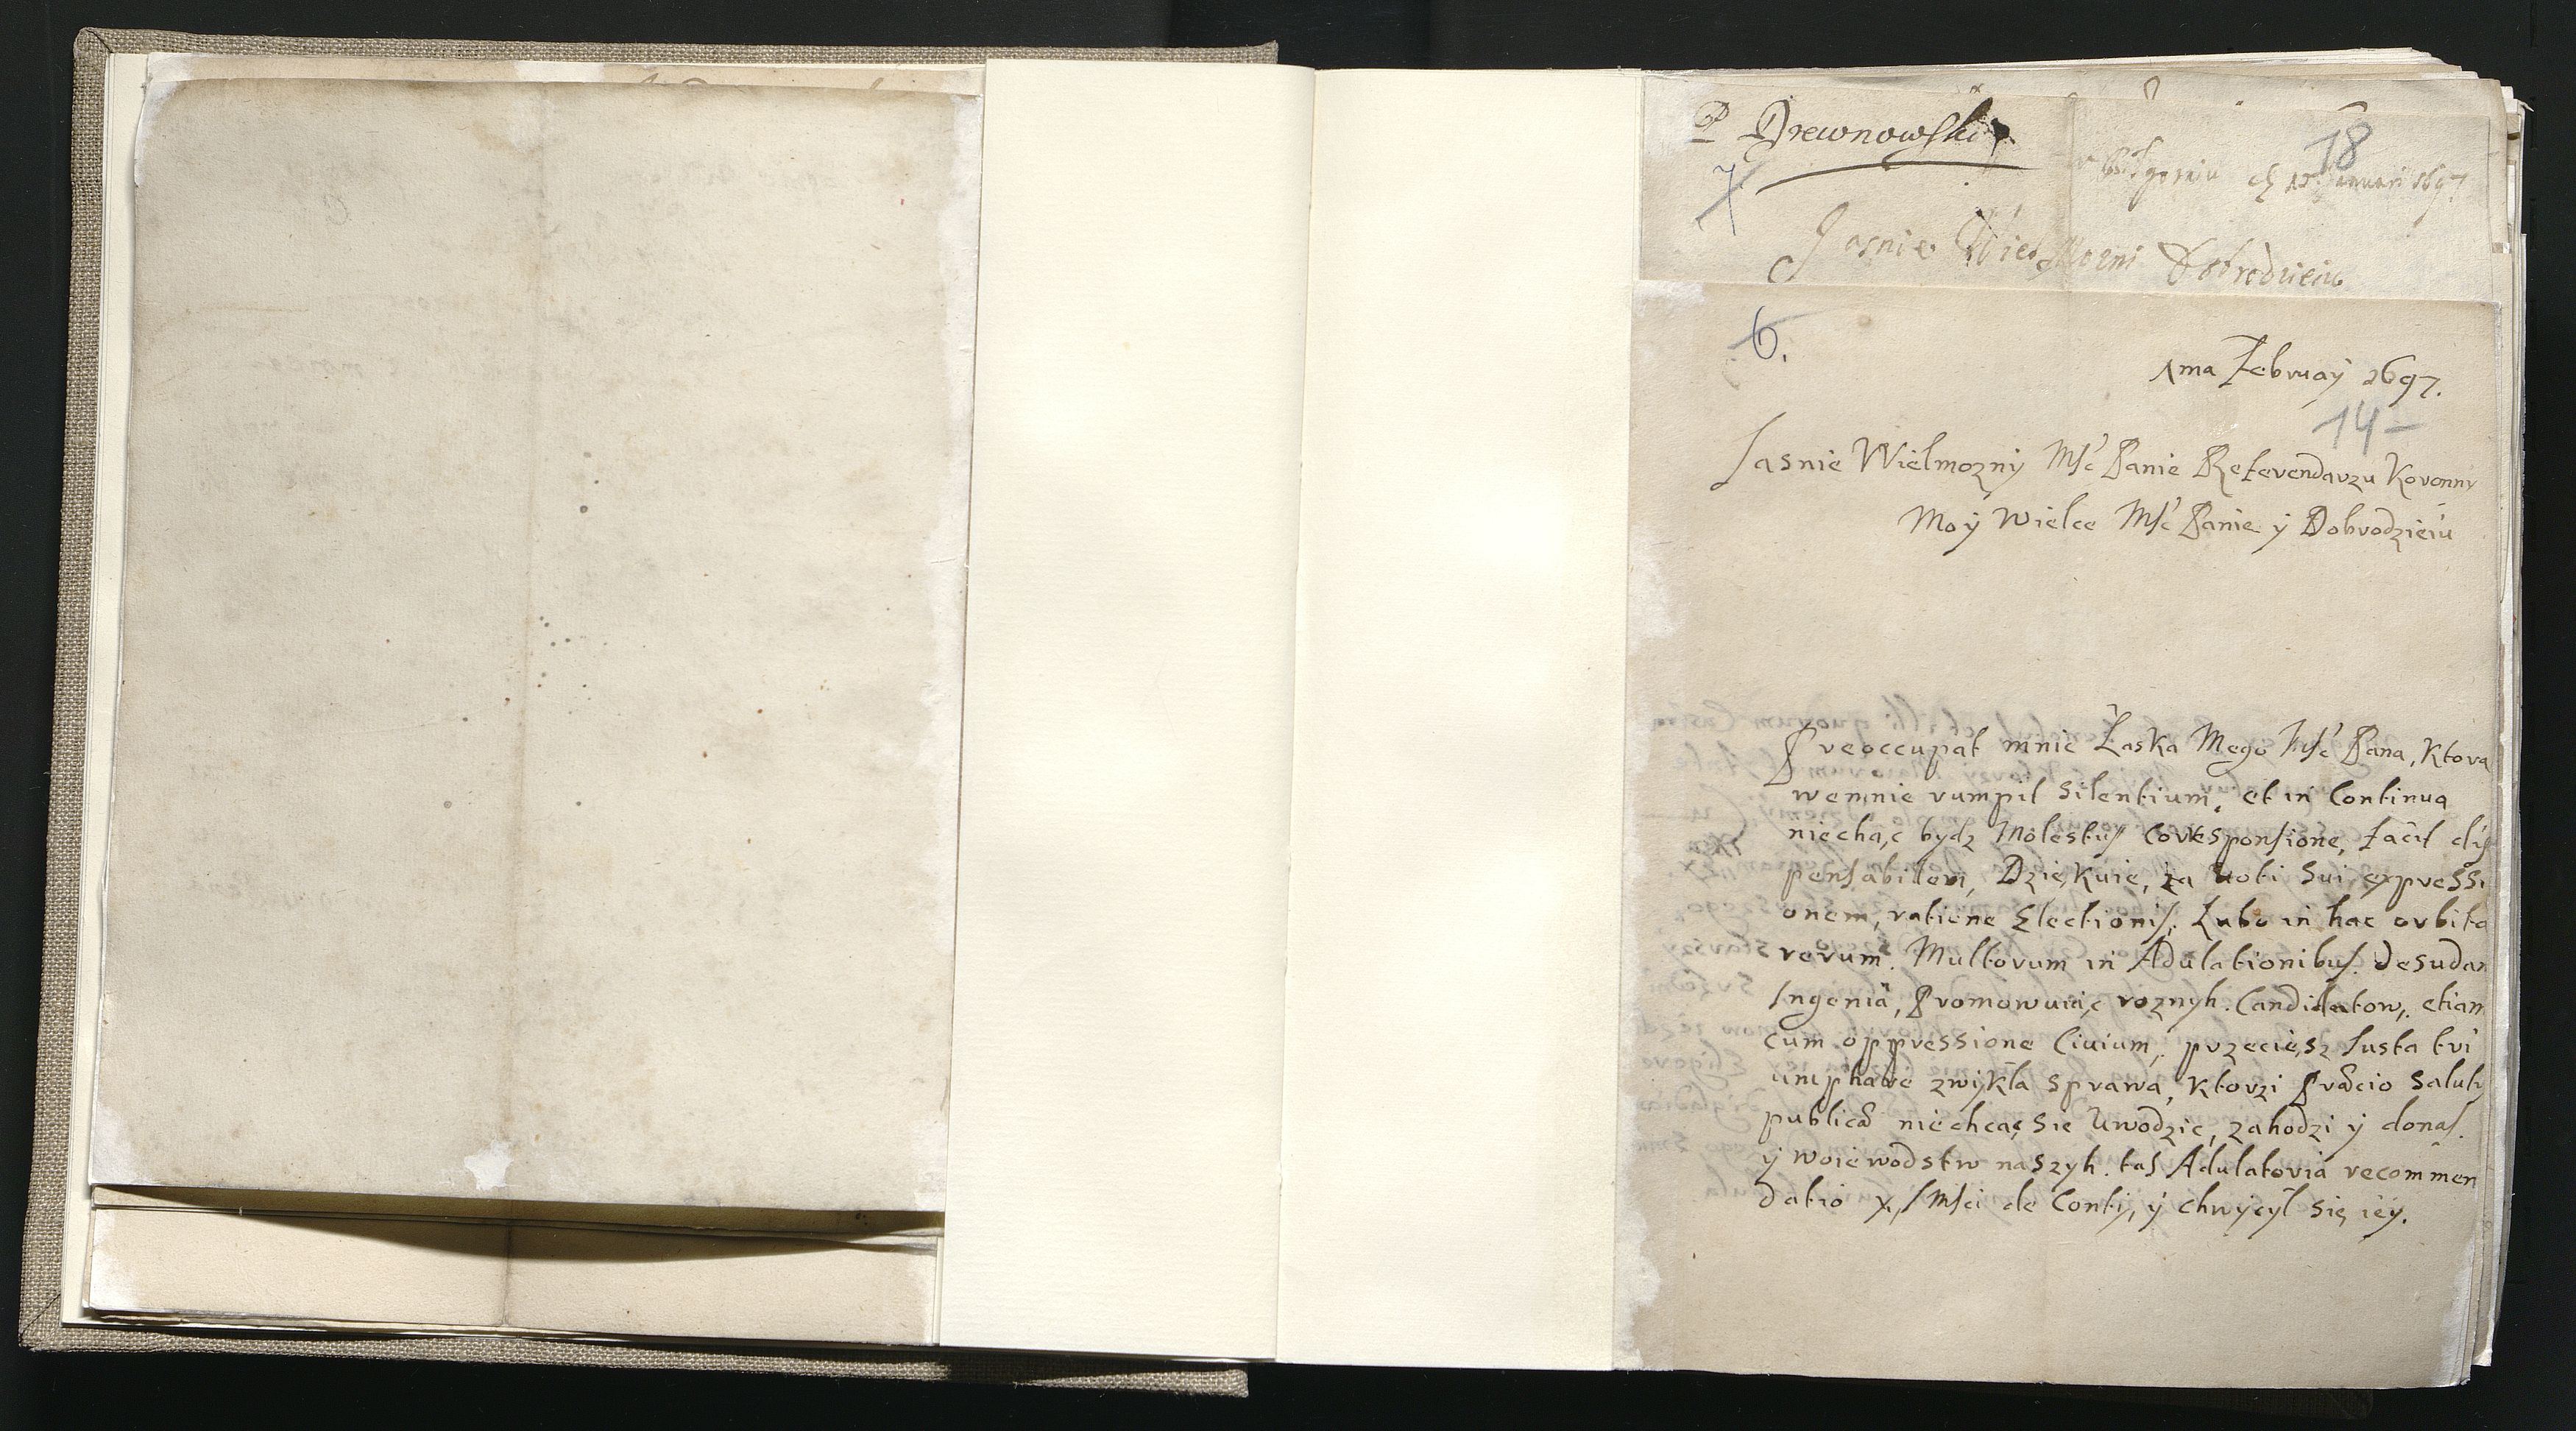 P Drewnowski
7.
18
w Biłgoraiu d 12 Januari 1697
Jasnie Wielmozni Dobrodzieiu
6.
1ma Februaÿ 1697.
14 -
Jasnie Wielmozny Msć Panie Referendarzu Koronny
Moÿ Wielce Msć Panie ÿ Dobrodzieiu
Preoccupat mnie Łaska Mego Msć Pana, Ktora
wemnie rumpit silentium, et in Continua
niechąc bydz Molestus Corresponsione, facit dis
pensabilem, Dziękuie, za Voti Sui expressi
onem, ratione Electionis, Lubo in hac orbita
rerum. Multorum in Adulationibus. desudan
Ingenia, Promowuiąc roznych. Candidatow, etiam
cum oppressione Ciuium, przeciesz Iusta tri
umphare zwykła sprawa, Ktorzi præcio Saluty
publicæ niechcąc Sie Uwodzic, zahodzi ÿ donas.
ÿ woiewodstw naszyh. tas Adulatoria recommen
datio X, J Msci de Contÿ, ÿ chwÿcÿł się ieÿ.